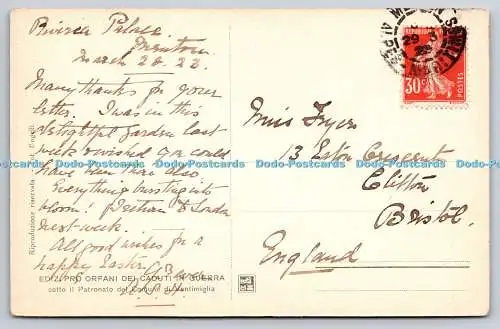 Riviera Palace
Mentone
March 28. 22.
Many thanks for your
letter. I was in this
delightful garden last
week & wished you could
have been there also
Everything bursting into
bloom! Return to London
next week.
All good wishes for a
happy Easter
EDIZ. PRO ORFANI DEI CADUTI IN GUERRA
sotto il Patronato del Comune di Ventimiglia
Riproduzione riservata
Miss Fryer
13 Eaton Crescent
Clifton
Bristol.
England
30c
POSTES
Dodo-Postcards Dodo-Postcards Dodo-Postcards Dodo-Postcards